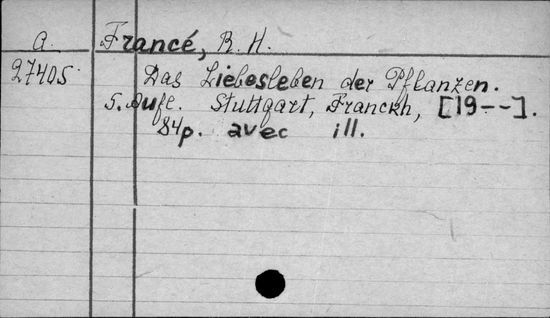 a. Francé, R. H.
27405 Das Liebesleben der Pflanzen.
5. Aufl. Stuttgart, Franckh, [19--].
84p. avec ill.